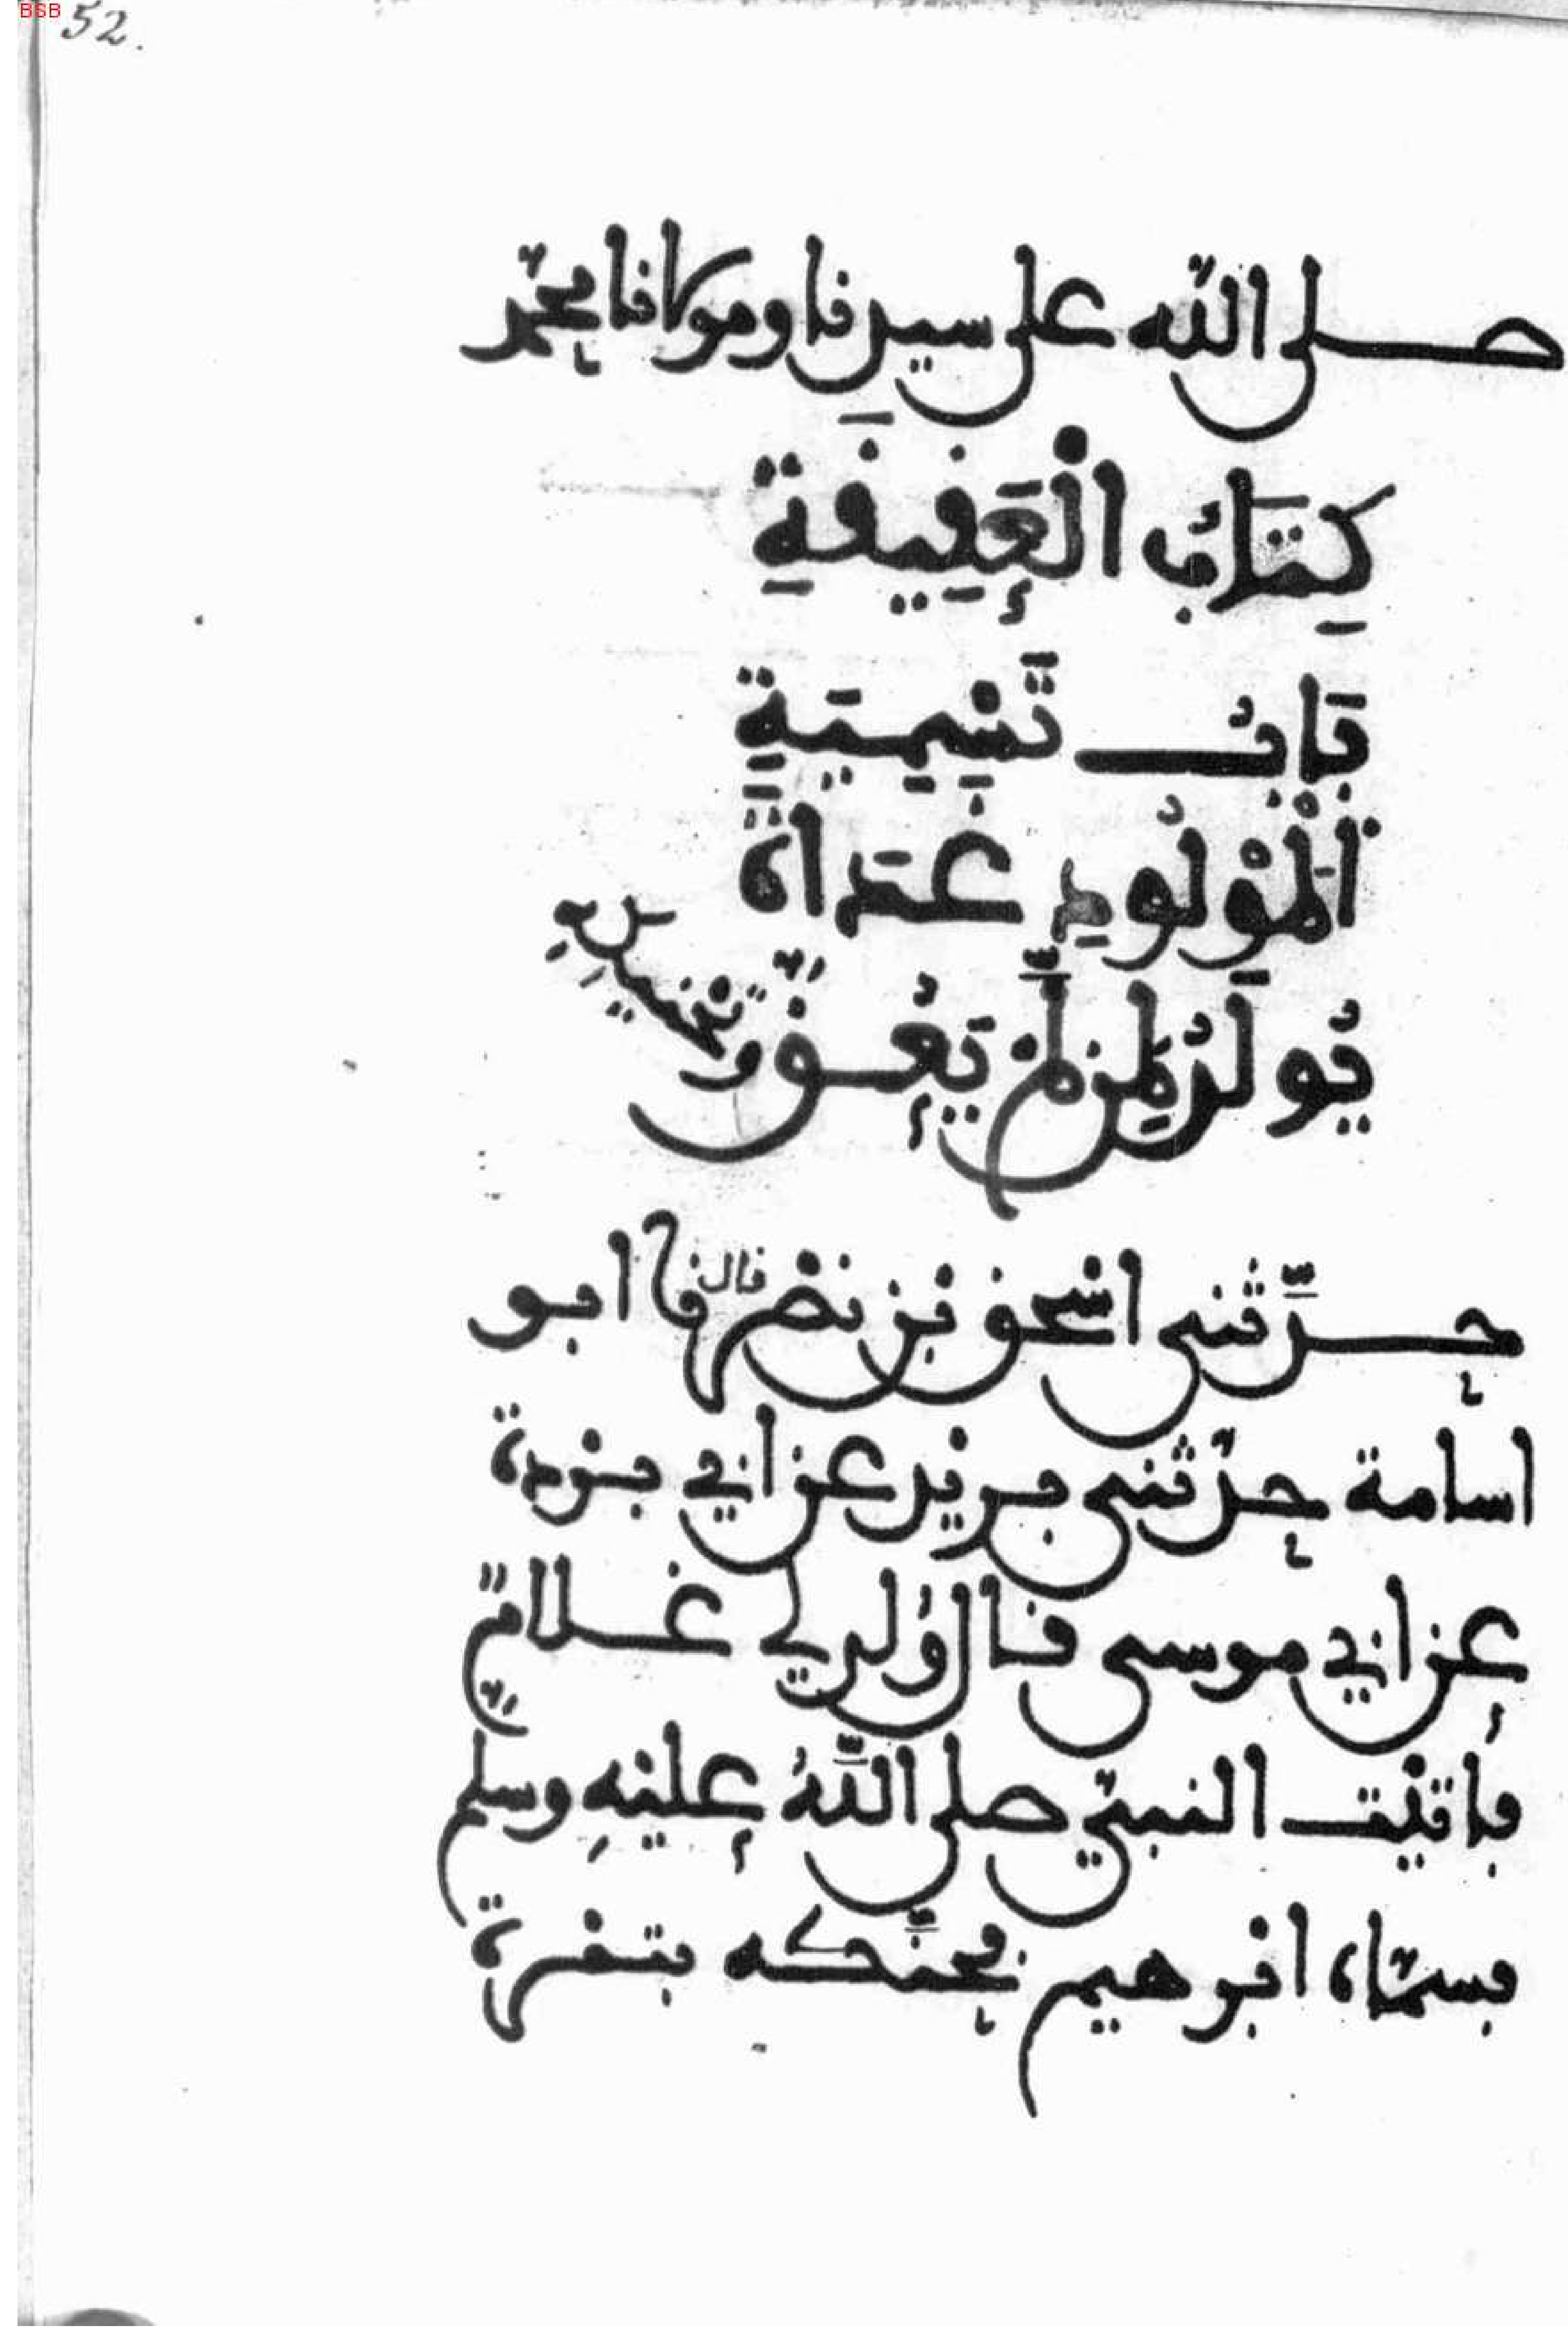 BSB
52.
صلى الله على سيدنا ومولانا محمد
كِتَابُ الْعَقِيقَةِ
بَابُ تَسْمِيَةِ
الْمَوْلُودِ غَدَاةَ
يُولَدُ لِمَن لَّمْ يَعُقَّ وتحْنِيكِهِ
حدَّثنى اسْحق بْن نصْر قال نا ابو
اسامة حدّثنى بريْد عن ابي بُرْدة
عن ابي موسى قال وُلد لي غلامٌ
فأتيْت النبيّ صلى اللَّهُ عليْهِ وسلم
فسمّاه ابْرهيم فحنَّكه بتمْرة